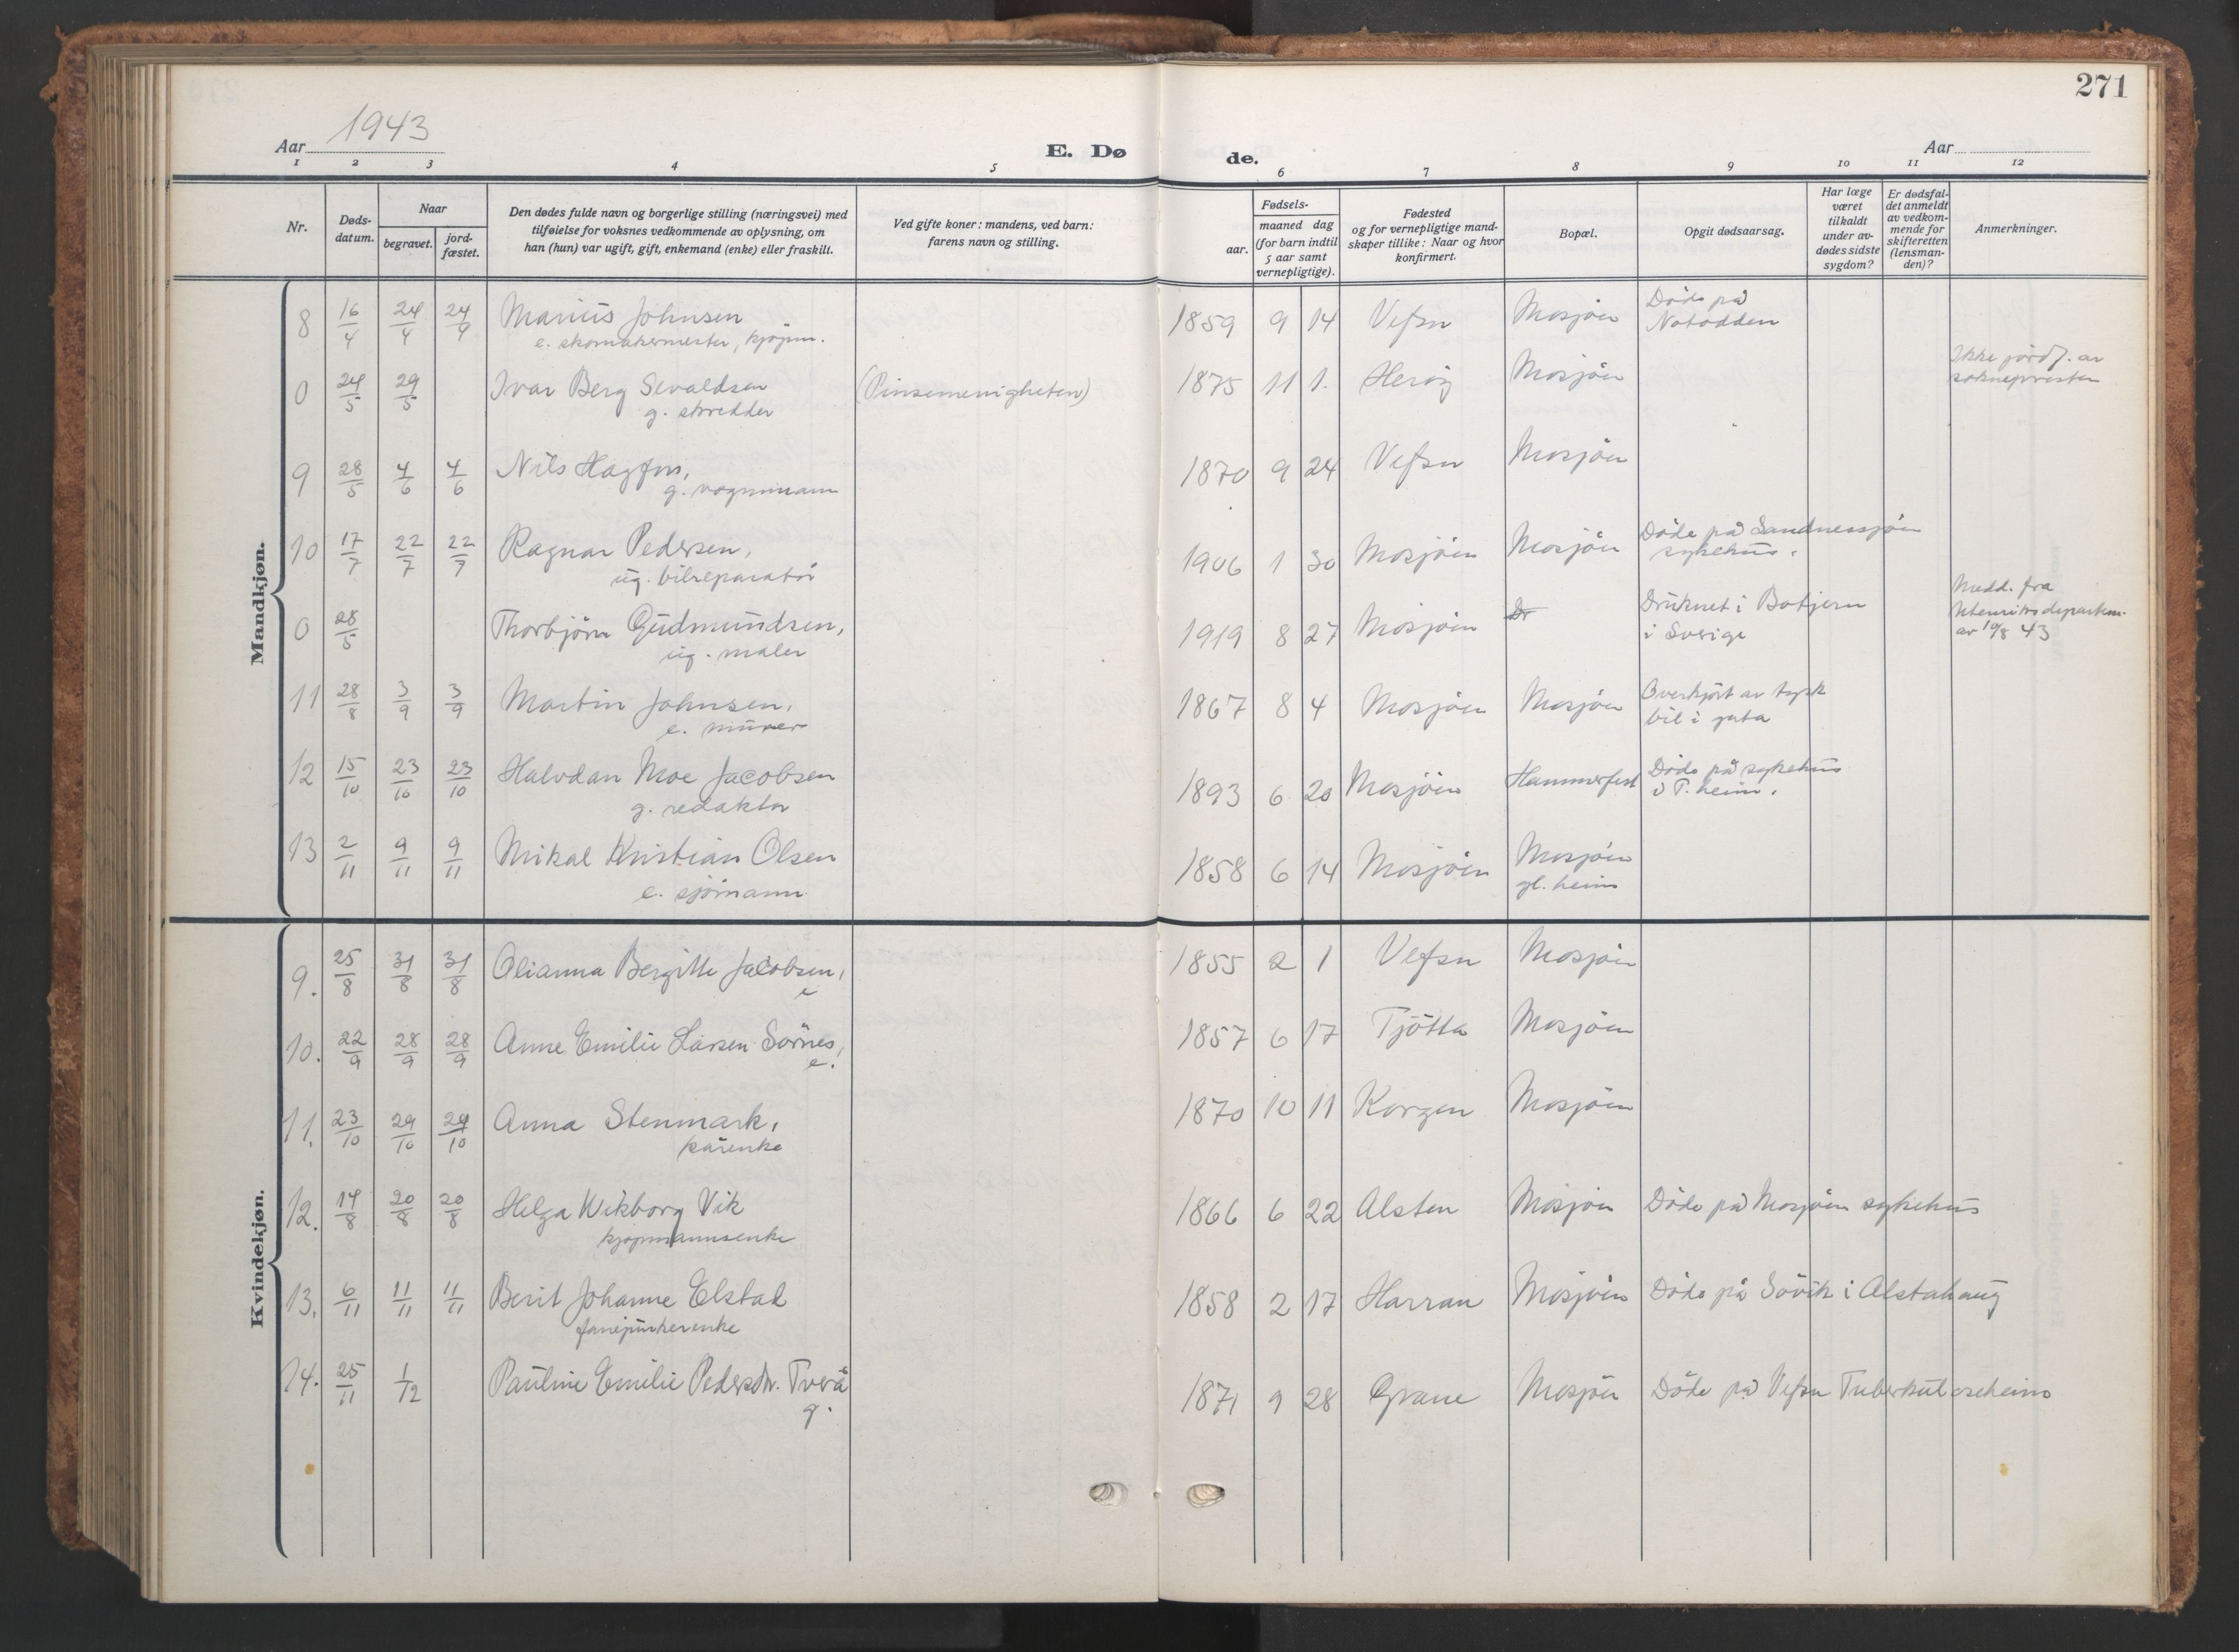 271
Aar 1943
E. Dø
de.
Aar
1 2 3 4 5 6 7 8 9 10 11 12
Nr.
Døds-
datum.
Naar
begravet.
jord-
fæstet.
Den dødes fulde navn og borgerlige stilling (næringsvei) med
tilføielse for voksnes vedkommende av oplysning, om
han (hun) var ugift, gift, enkemand (enke) eller fraskilt.
Ved gifte koner: mandens, ved barn:
farens navn og stilling.
Fødsels-
aar.
maaned dag
(for barn indtil
5 aar samt
vernepligtige).
Fødested
og for vernepligtige mand-
skaper tillike: Naar og hvor
konfirmert.
Bopæl.
Opgit dødsaarsag.
Har læge
været
tilkaldt
under av-
dødes sidste
sygdom?
Er dødsfal-
det anmeldt
av vedkom-
mende for
skifteretten
(lensman-
den)?
Anmerkninger.
Mandkjøn.
8 16/4 24/4 24/4 Marius Johnsen 1859 9 14 Vefsn Mosjöen Döde på
Notodden
e. skomakermester, kjøpm.
0 24/5 29/5 Ivar Berg Sevaldsen (Pinsemenigheten) 1875 11 1. Heröy Mosjöen Ikke jordf. av
sokneprester
g. skredder
9 28/5 4/6 4/6 Nils Hagfors, 1870 9 24 Vefsn Mosjöen
g. vognmann
10 17/7 22/7 22/7 Ragnar Pedersen, 1906 1 30 Mosjöen Mosjöen Döde på Sandnessjöen
sykehus.
ug. bilreparatör
0 28/5 Thorbjörn Gudmundsen, 1919 8 27 Mosjöen Dr Druknet i Botjern
i Sverige
Medd. fra
Utenriksdepartem.
av 10/8 43
ug. maler
11 28/8 3/9 3/9 Martin Johnsen, 1867 8 4 Mosjöen Mosjöen Overkjört av tysk
bil i gata
e. murer
12 15/10 23/10 23/10 Halvdan Moe Jacobsen 1893 6 20 Mosjöen Hammerfest Döde på sykehus
i T.heim.
g. redaktör
13 2/11 9/11 9/11 Mikal Kristian Olsen 1858 6 14 Mosjöen Mosjöen
gl. heim
e. sjömann
Kvindekjøn.
9. 25/8 31/8 31/8 Olianna Bergitte Jacobsen, 1855 2 1 Vefsn Mosjöen
e
10. 22/9 28/9 28/9 Anne Emilie Larsen Sörnes, 1857 6 17 Tjötta Mosjöen
e.
11. 23/10 29/10 29/10 Anna Stenmark, 1870 10 11 Korgen Mosjöen
kårenke
12. 14/8 20/8 20/8 Helga Wikborg Vik 1866 6 22 Alsten Mosjöen Döde på Mosjöen sykehus
kjøpmannsenke
13. 6/11 11/11 11/11 Berit Johanne Elstad 1858 2 17 Harran Mosjöen Döde på Sövik i Alstahaug
fanejunkerenke
14. 25/11 1/12 Pauline Emilie Pedersdtr. Tverå 1871 9 28 Grane Mosjöen Döde på Vefsn Tuberkuloseheim
g.